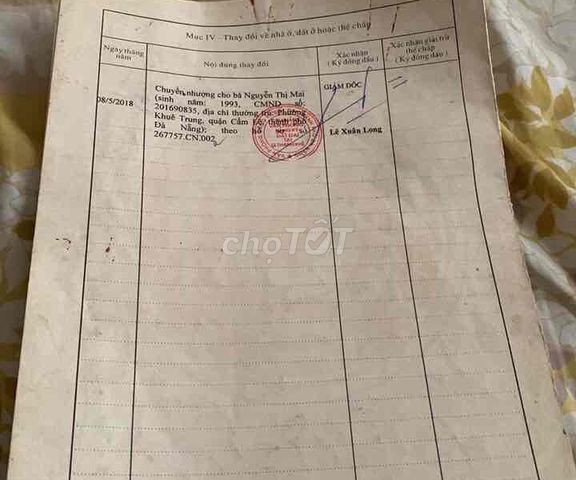 Mục IV - Thay đổi về nhà ở, đất ở hoặc thế chấp
Ngày tháng năm
Nội dung thay đổi
Xác nhận
(Ký đóng dấu)
Xác nhận giải trừ
thế chấp
(Ký đóng dấu)
08/5/2018
Chuyển nhượng cho bà Nguyễn Thị Mai
(sinh năm: 1993, CMND số:
201690835, địa chỉ thường trú: Phường
Khuê Trung, quận Cẩm Lệ, thành phố
Đà Nẵng); theo hồ sơ số
267757.CN.002
GIÁM ĐỐC
Lê Xuân Long
chợTỐT